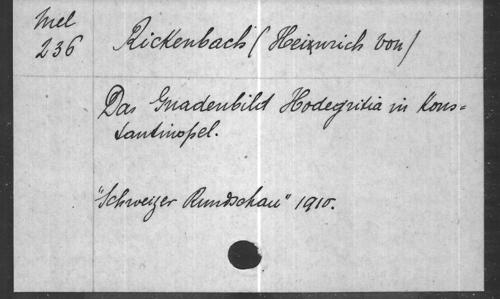 Mel
236
Rickenbach (Heinrich von)
Das Gnadenbild Hodegritia in Kons=
tantinopel.
"Schweizer Rundschau" 1910.